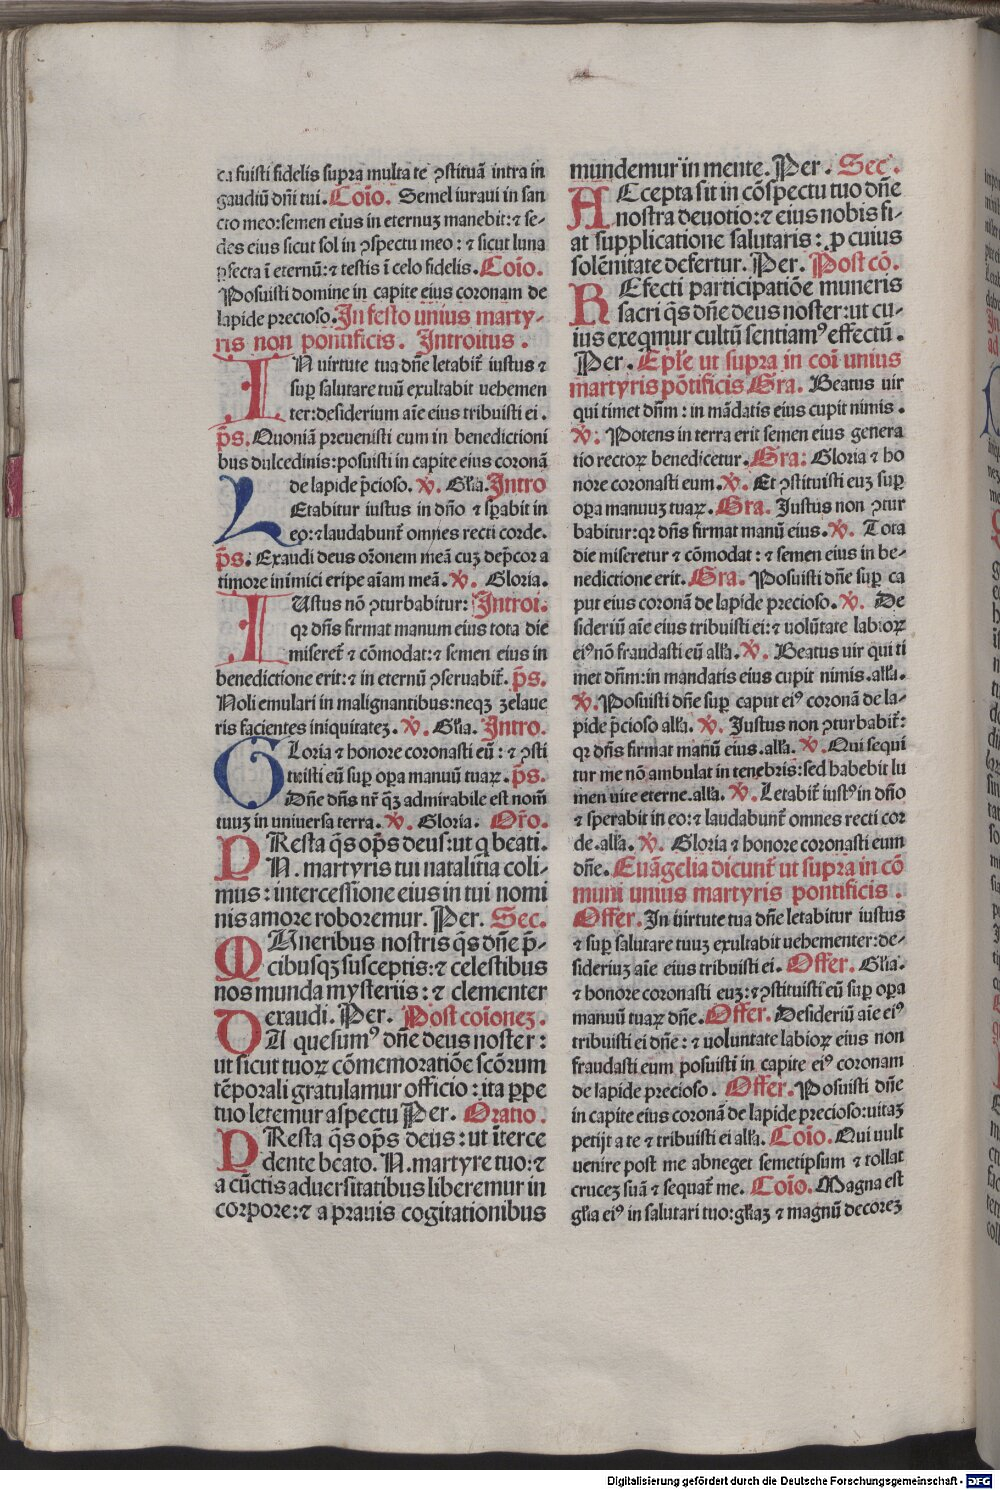 ca fuisti fidelis supra multa te ꝯstituā intra in
gaudiū dn̄i tui. Coīo. Semel iuraui in san
cto meo: semen eius in eternuꝫ manebit: ⁊ se-
des eius sicut sol in ꝯspectu meo: ⁊ sicut luna
ꝑfecta ī eternū: ⁊ testis ī celo fidelis. Coīo.
Posuisti domine in capite eius coronam de
lapide precioso. In festo unius marty-
ris non pontificis. Introitus.
IN uirtute tua dn̄e letabit̄ iustus ⁊
suꝑ salutare tuū exultabit uehemen
ter: desiderium aīe eius tribuisti ei.
p̄s. Quoniā preuenisti eum in benedictioni
bus dulcedinis: posuisti in capite eius coronā
de lapide p̄cioso. ꝟ. Gl̄ia. Intro
LEtabitur iustus in dn̄o ⁊ sꝑabit in
eo: ⁊ laudabunt̄ omnes recti corde.
p̄s. Exaudi deus or̄onem meā cuꝫ dep̄cor a
timore inimici eripe aīam meā. ꝟ. Gloria.
IUstus nō ꝯturbabitur: Introi.
qꝛ dn̄s firmat manum eius tota die
miseret̄ ⁊ cōmodat: ⁊ semen eius in
benedictione erit: ⁊ in eternū ꝯseruabit̄. p̄s.
Noli emulari in malignantibus: neqꝫ zelaue
ris facientes iniquitateꝫ. ꝟ. Gl̄ia. Intro.
GLoria ⁊ honore coronasti eū: ⁊ ꝯsti
tuisti eū suꝑ oꝑa manuū tuaꝝ. p̄s.
Dn̄e dn̄s nr̄ q̄ꝫ admirabile est nom̄
tuuꝫ in uniuersa terra. ꝟ. Gloria. Or̄o.
PResta q̄s op̄s deus: ut q beati.
N. martyris tui natalitia coli-
mus: intercessione eius in tui nomi
nis amore roboremur. Per. Sec.
MUneribus nostris q̄s dn̄e p̄-
cibusqꝫ susceptis: ⁊ celestibus
nos munda mysteriis: ⁊ clementer
exaudi. Per. Post coīoneꝫ.
DA quesumꝰ dn̄e deus noster:
ut sicut tuoꝝ cōmemoratiōe scōrum
tēporali gratulamur officio: ita ꝑpe
tuo letemur aspectu Per. Oratio.
PResta q̄s op̄s deus: ut īterce
dente beato. N. martyre tuo: ⁊
a cūctis aduersitatibus liberemur in
corpore: ⁊ a prauis cogitationibus
mundemur in mente. Per. Sec̄.
ACcepta sit in cōspectu tuo dn̄e
nostra deuotio: ⁊ eius nobis fi-
at supplicatione salutaris: ꝓ cuius
solēnitate defertur. Per. Post cō.
REfecti participatiōe muneris
sacri q̄s dn̄e deus noster: ut cu-
ius exeqmur cultū sentiamꝰ effectū.
Per. Ep̄le ut supra in coī unius
martyris pōtificis Gra. Beatus uir
qui timet dn̄m: in mādatis eius cupit nimis.
ꝟ: Potens in terra erit semen eius genera
tio rectoꝝ benedicetur. Gra: Gloria ⁊ ho
nore coronasti eum. ꝟ. Et ꝯstituisti euꝫ suꝑ
oꝑa manuuꝫ tuaꝝ. Gra. Justus non ꝯtur
babitur: qꝛ dn̄s firmat manū eius. ꝟ. Tota
die miseretur ⁊ cōmodat: ⁊ semen eius in be-
nedictione erit. Gra. Posuisti dn̄e suꝑ ca
put eius coronā de lapide precioso. ꝟ. De
sideriū aīe eius tribuisti ei: ⁊ uolūtate labioꝝ
eiꝰ nō fraudasti eū all̄a. ꝟ. Beatus uir qui ti
met dn̄m: in mandatis eius cupit nimis. all̄a.
ꝟ. Posuisti dn̄e suꝑ caput eiꝰ coronā de la-
pide p̄cioso all̄a. ꝟ. Justus non ꝯturbabit̄:
qꝛ dn̄s firmat manū eius. all̄a. ꝟ. Qui sequi
tur me nō ambulat in tenebris: sed habebit lu
men uite eterne. all̄a. ꝟ. Letabit̄ iustꝰ in dn̄o
⁊ sperabit in eo: ⁊ laudabunt̄ omnes recti cor
de. all̄a. ꝟ. Gloria ⁊ honore coronasti eum
dn̄e. Euāgelia dicunt̄ ut supra in cō
muni unius martyris pontificis.
Offer. In uirtute tua dn̄e letabitur iustus
⁊ suꝑ salutare tuuꝫ exultabit uehementer: de-
sideriuꝫ aīe eius tribuisti ei. Offer. Gl̄ia.
⁊ honore coronasti euꝫ: ⁊ ꝯstituisti eū suꝑ oꝑa
manuū tuaꝝ dn̄e. Offer. Desideriū aīe eiꝰ
tribuisti ei dn̄e: ⁊ uoluntate labioꝝ eius non
fraudasti eum posuisti in capite eiꝰ coronam
de lapide precioso. Offer. Posuisti dn̄e
in capite eius coronā de lapide precioso: uitaꝫ
petijt a te ⁊ tribuisti ei all̄a. Coīo. Qui uult
uenire post me abneget semetipsum ⁊ tollat
cruceꝫ suā ⁊ sequat̄ me. Coīo. Magna est
gl̄ia eiꝰ in salutari tuo: gl̄iaꝫ ⁊ magnū decoreꝫ
Digitalisierung gefördert durch die Deutsche Forschungsgemeinschaft - DFG